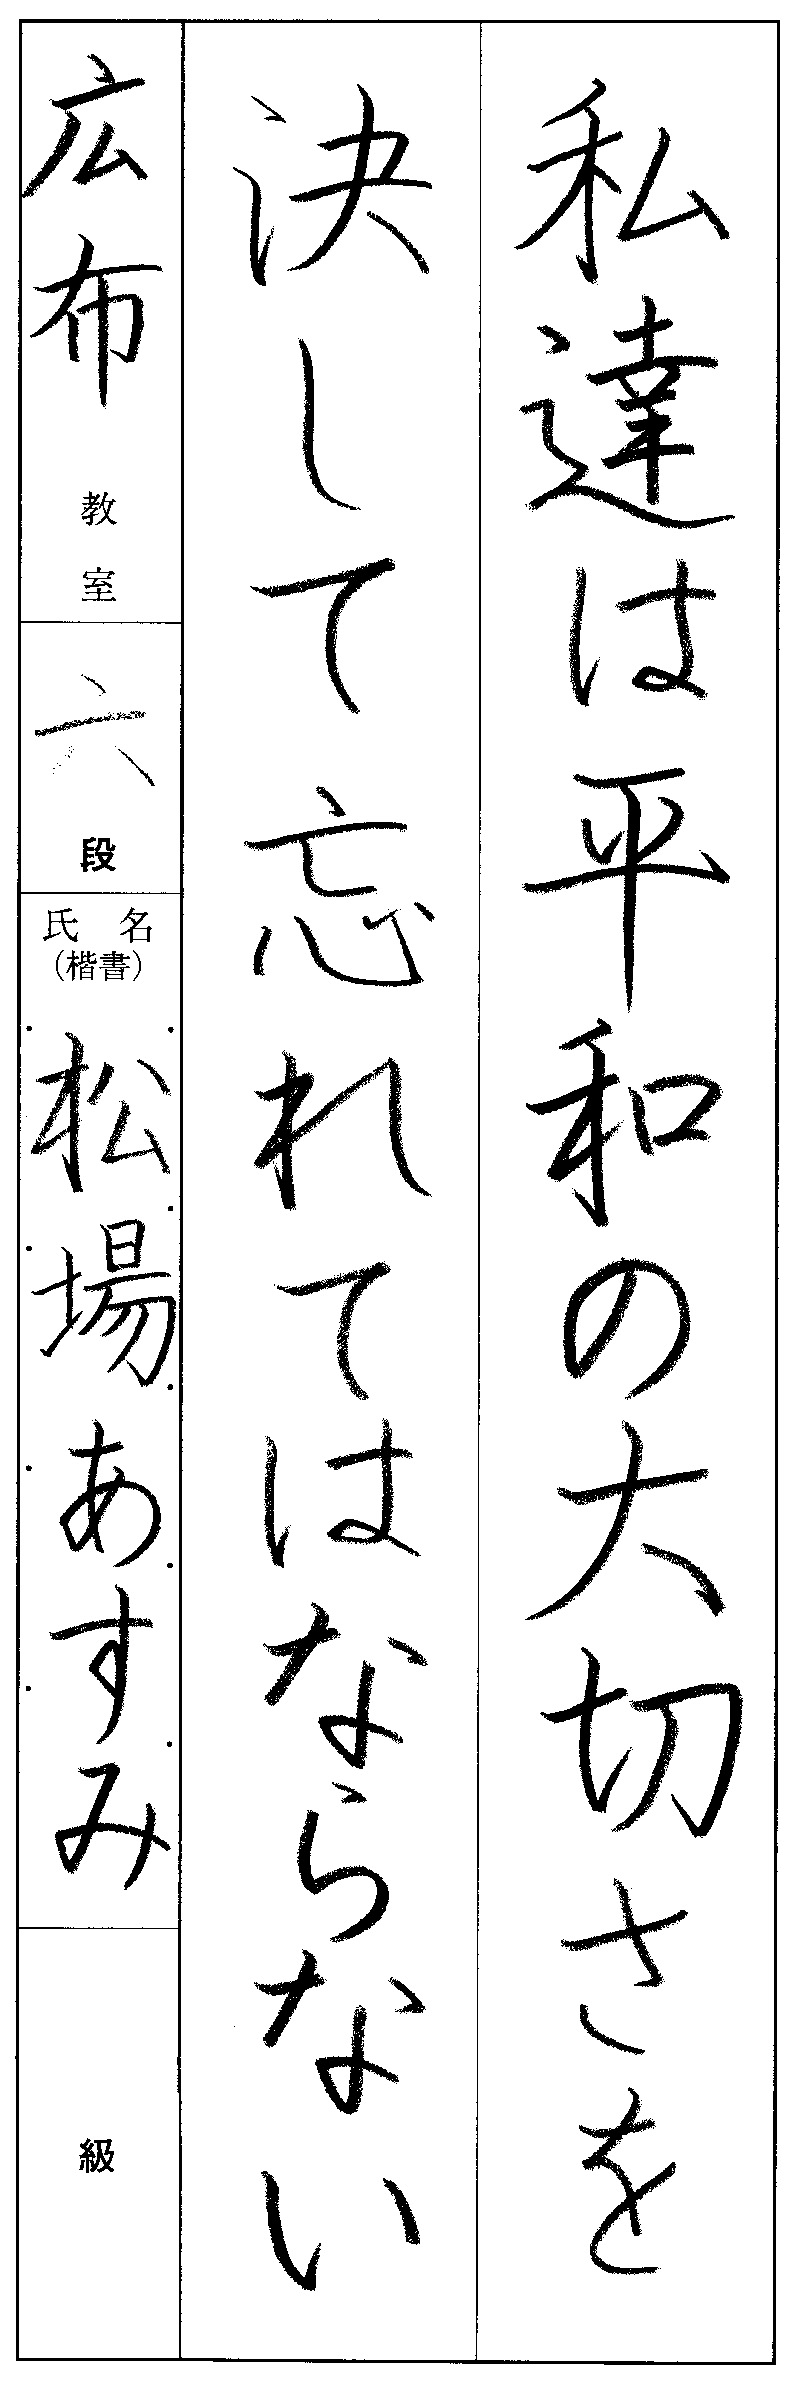 私達は平和の大切さを
決して忘れてはならない
広布教室
六段
氏名
（楷書）
松場あすみ
級